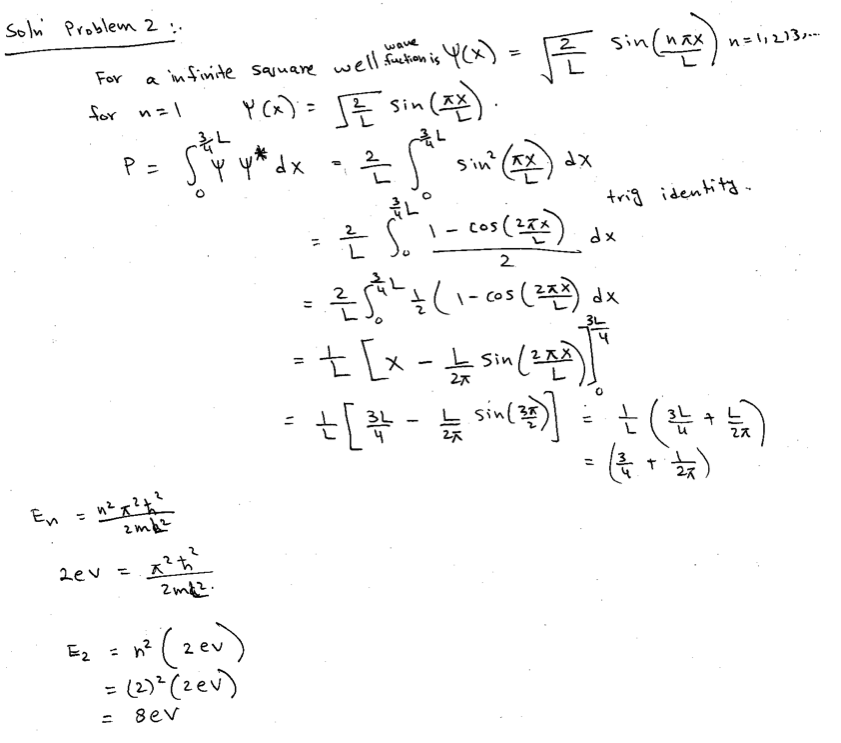 Soln Problem 2 :.
For a infinite square well wave fuction is Ψ(x) = √(2/L) sin(nπx/L) n=1,2,3,...
for n=1 Ψ(x) = √(2/L) sin(πx/L).
P = ∫₀^(3/4 L) Ψ Ψ* dx = 2/L ∫₀^(3/4 L) sin²(πx/L) dx
trig identity.
= 2/L ∫₀^(3/4 L) (1 - cos(2πx/L))/2 dx
= 2/L ∫₀^(3/4 L) 1/2 (1 - cos(2πx/L) dx
= 1/L [x - L/2π sin(2πx/L)]₀^(3L/4)
= 1/L [3L/4 - L/2π sin(3π/2)] = 1/L (3L/4 + L/2π)
= (3/4 + 1/2π)
Eₙ = n²π²ħ²/2mL²
2ev = π²ħ²/2mL².
E₂ = n² (2 ev)
= (2)² (2eV)
= 8eV